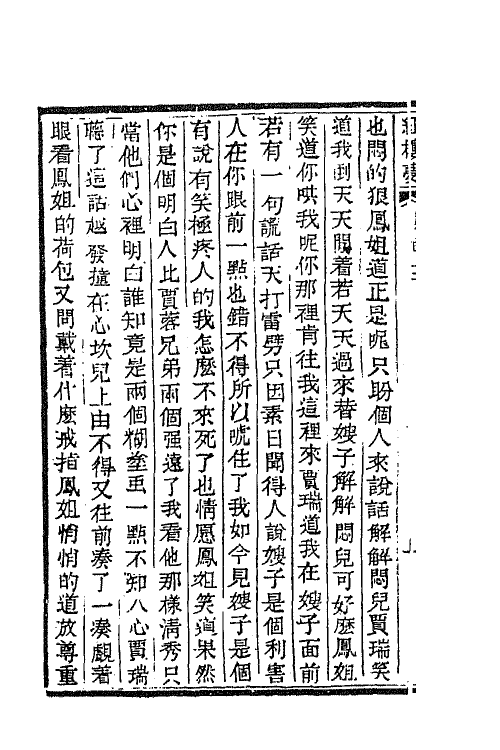 也悶的狠鳳姐道正是呢只盼個人來說話解解悶兒賈瑞笑
道我倒天天閒着若天天過來替嫂子解解悶兒可好麽鳳姐
笑道你哄我呢你那裡肯往我這裡來賈瑞道我在嫂子面前
若有一句謊話天打雷劈只因素日聞得人說嫂子是個利害
人在你跟前一點也錯不得所以唬住了我如今見嫂子是個
有說有笑極疼人的我怎麽不來死了也情愿鳳姐笑道果然
你是個明白人比賈蓉兄弟兩個强遠了我看他那樣淸秀只
當他們心裡明白誰知竟是兩個糊塗虫一點不知人心賈瑞
聽了這話越發撞在心坎兒上由不得又往前凑了一凑覷着
眼看鳳姐的荷包又問戴着什麽戒指鳳姐悄悄的道放尊重